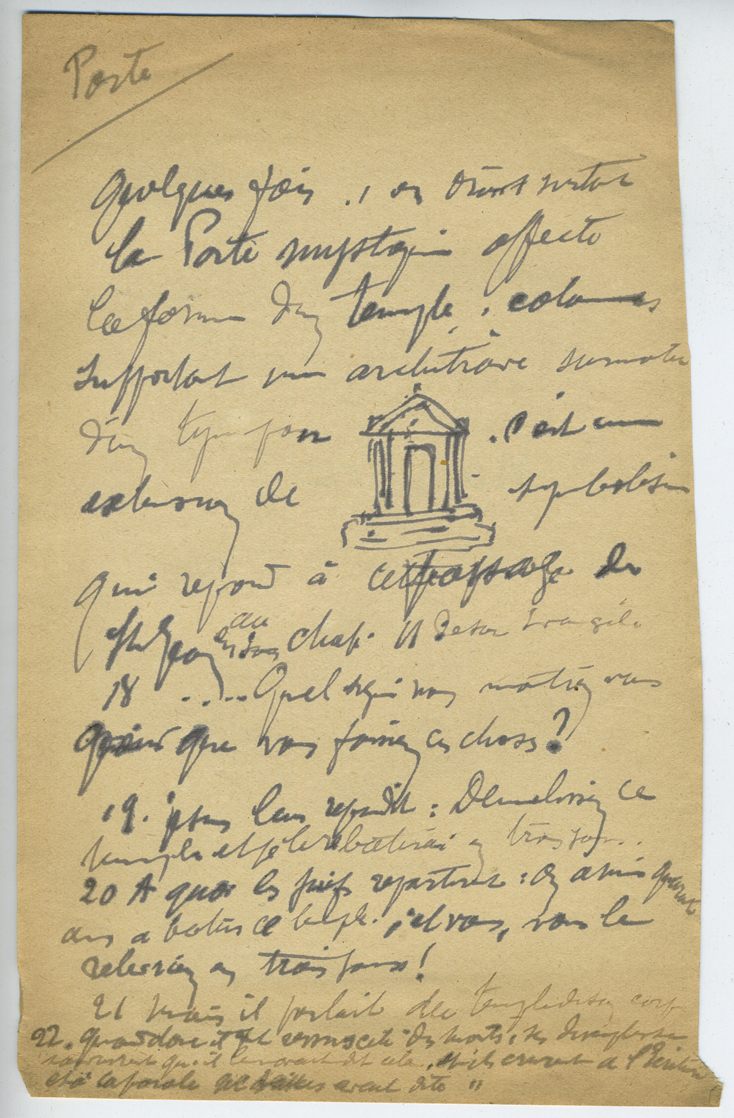 Porte
Quelques fois, en Orient surtout
la Porte mystique affecte
la forme d'un temple, colonnes
supportant une architrave surmontée
d'un tympan . C'est une
extension de symbolisme
qui repond à ce passage de
St Jean au chap. II de son Evangile
18 ..... Quel signe nous montrez vous
que vous faisiez ces choses?
19. Jesus leur repondit : Demolissez ce
temple et je le rebâtirai en trois jours.
20 A quoi les Juifs repartirent : on a mis quarante
ans a batir ce temple. et vous, vous le
releveriez en trois jours!
21 Mais il parlait du temple de son corps
22. Quand donc il fut ressuscité des morts, ses disciples se
souvinrent qu'il leur avait dit cela, et ils crurent a l'Ecriture
et à la parole que avait dite "